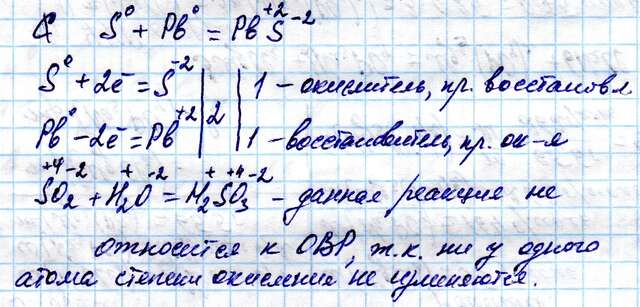 S⁰ + Pb⁰ = Pb⁺²S⁻²
S⁰ + 2ē = S⁻² | | 1 – окислитель, пр. восстановл
Pb⁰ – 2ē = Pb⁺² | 2 | 1 – восстановитель, пр. ок-я
S⁺⁴O₂⁻² + H₂⁺O⁻² = H₂⁺S⁺⁴O₃⁻² – данная реакция не
относится к ОВР, т.к. ни у одного
атома степени окисления не изменяются.